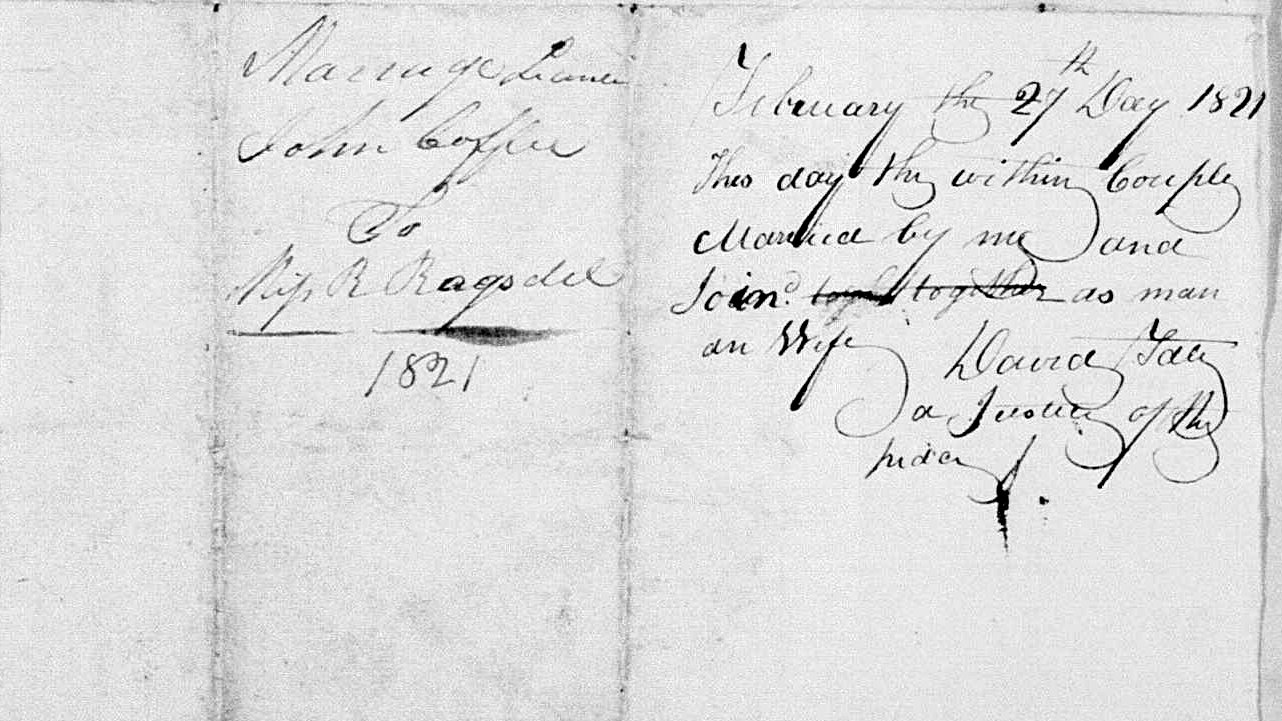 Marriage License
John Coffee
To
Kip R Ragsdel
1821
February the 27th Day 1821
This day the within Couple
Married by me and
Join.d together as man
an Wife David Tate
a Justice of the
peace